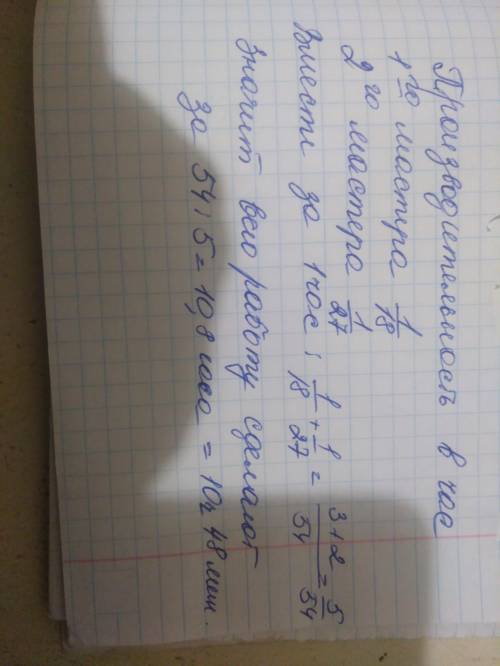 Производительность в час
1го мастера 1/18
2го мастера 1/27
Вместе за 1 час: 1/18 + 1/27 = 3+2/54 = 5/54
Значит всю работу сделают
за 54:5 = 10,8 часа = 10ч 48 мин.